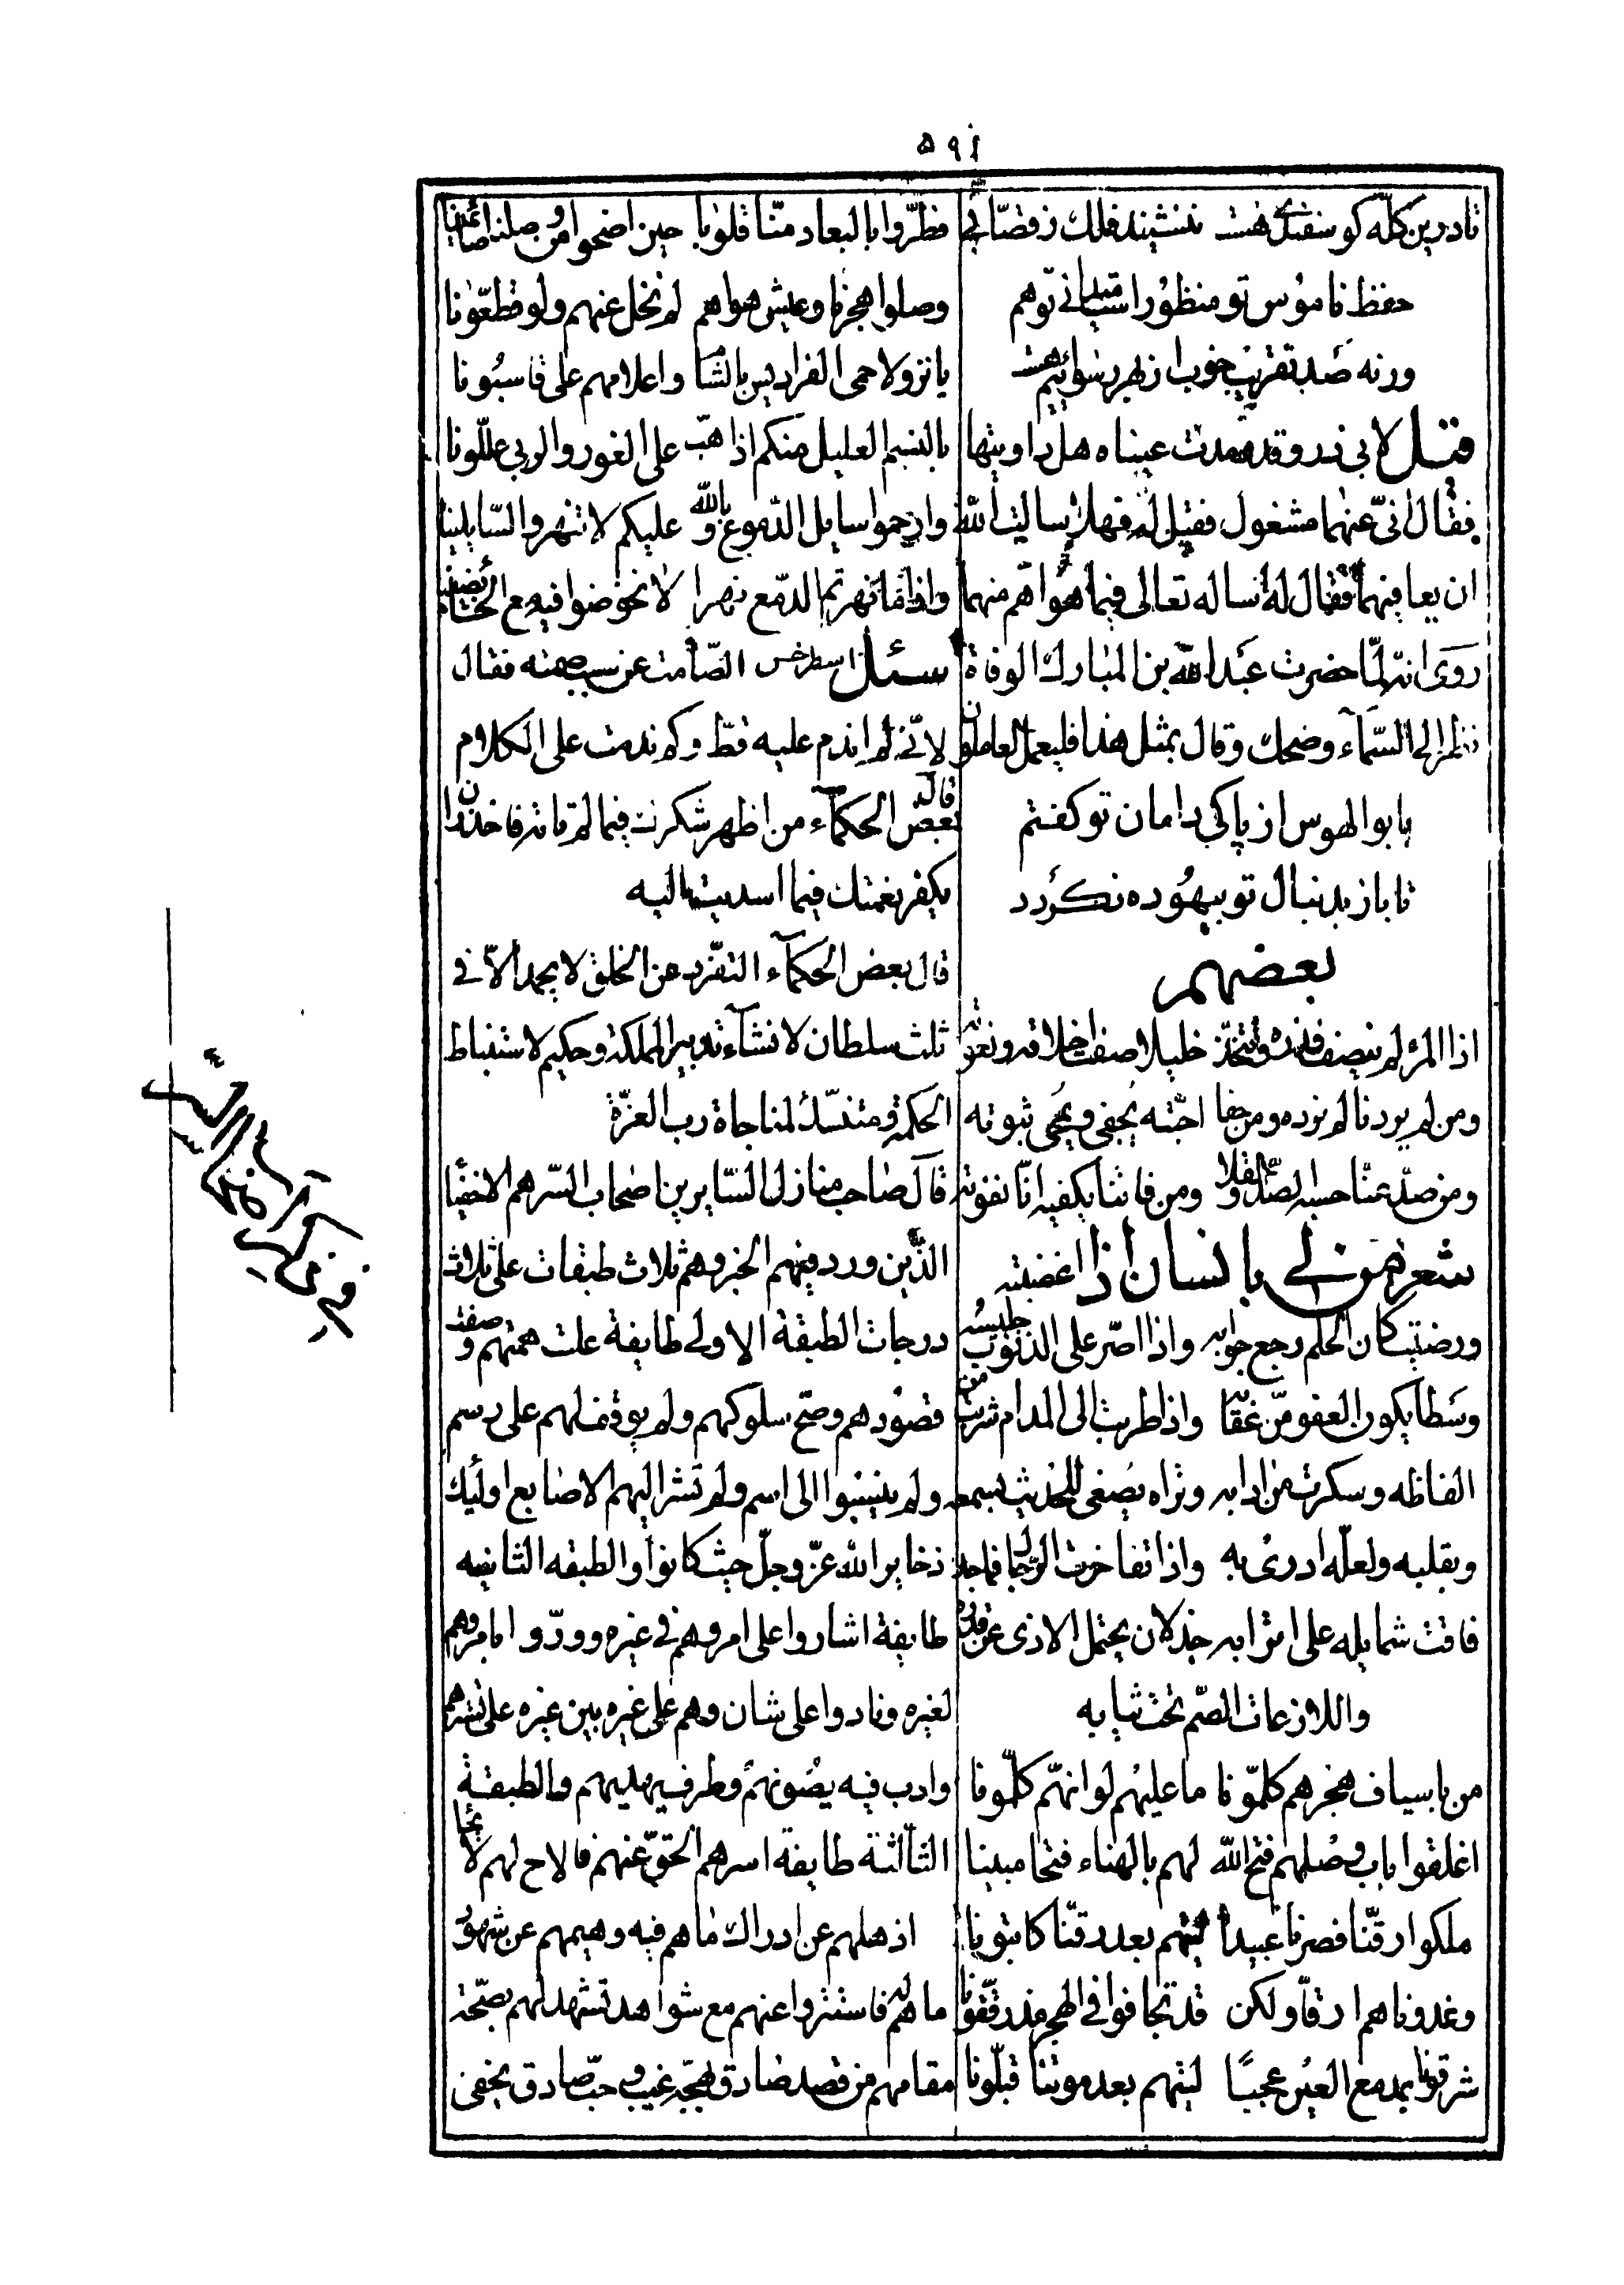 ٥٩١
تا درین کلّه کوسفندی هست ننشیند فلک ز قصّابی
حفظ ناموس تو منظور است میدانی تو هم
ورنه صد تقریب خوب از بهر رسوائیم هست
قیل لابی ذر وقد رمدت عیناه هل داویتها
فقال انّی عنهما مشغول فقیل له فهلا سالت الله
ان یعافیهما فقال له أساله تعالی فیما هو اهم منهما
روی انه لمّا حضرت عبد الله بن المبارک الوفاة
نظر الی السّماء وضحک وقال بمثل هذا فلیعمل العاملون
با بو الهوس از پاکی دامان تو گفتم
تا باز بدنبال تو بیهوده نگردد
بعضهم
اذا المرء لم ینصف خلیلا صفت اخلاقه
ومن لم یردنا لم نرده ومن جفا احبّته یجفی
ومن صدّ عنّا حسبه الصدّ والقلا ومن فاتنا یکفیه انّا نفوته
شعر من لی بانسان اذا اغضبته
ورضیت کان الحلم رجع جوابه واذا اصرّ علی الذنوب جلیسه
وسطا یکون العفو مرّ عقابه واذا طربت الی المدام شربت من
الفاظه وسکرت من ادابه وتراه یصغی للحدیث بسمعه
وبقلبه ولعلّه ادری به واذا تفاخرت الرجال
فاقت شمایله علی اترابه جذلان یحتمل الاذی عن
واللاذعات الصّم تحت ثیابه
من باسیاف هجرهم کلّمونا ما علیهم لو انهّم کلّمونا
اغلقوا باب وصلهم فتح الله لهم بالهناء فتحا مبینا
ملکوا رقّنا فصرنا عبیدا لیتهم بعد رقّنا کاتبونا
وغدونا هم ارقّا ولکن قد تجافوا فی الهجر
شرقونا بمدمع العین عجبًا لیتهم بعد موتنا قبلّونا
فظّروا بالبعاد منّا قلوبا حین اضحوا من وصلنا
وصلوا هجرنا وعیش هواهم لم نحل عنهم ولو قطعّونا
یا نزولا حمی الفرادیس بالشّام واعلامهم علی قاسیونا
بالنسیم العلیل منکم اذا هبّ علی الغور والربی علّلونا
وارحموا سایل الدّموع وبالله علیکم لا تنهروا السّایلینا
واذا ما نهرتم الدّمع نهرا لا تخوضوا فیه مع الخایضینا
سئل اسطرخس الصّامت عن سبب صمته فقال
لانّی لم اندم علیه قطّ وکم ندمت علی الکلام
قال بعض الحکمآء من اظهر شکرک فیما لم تاته فاحذر ان
یکفر نعمتک فیما اسدیت الیه
قال بعض الحکمآء التفرّد عن الخلق لا یحمد الاّ فی
ثلث سلطان لانشآء تدبیر المملکة وحکیم لاستنباط
الحکمة ومتنسّک لمناجاة رب العزّة
قال صاحب منازل السّایرین اصحاب السّر هم الاخفیآء
الذّین ورد فیهم الخبر وهم ثلاث طبقات علی ثلاث
درجات الطبقة الاولی طایفة علت همتهم وصفت
قصودهم وصحّ سلوکهم ولم یوقف لهم علی رسم
ولم ینسبوا الی اسم ولم تشر الیهم الاصابع اولئک
ذخایر الله عزّ وجلّ حیث کانوا والطبقه الثانیه
طایفة اشاروا علی امر وهم فی غیره وورّوا بامر وهم
لغیره ونادوا علی شان وهم علی غیره بین غیره علی تسترهم
وادب فیه یصونهم وظرف یهدیهم والطبقة
الثالثة طایفة اسرهم الحقّ عنهم فالاح لهم لایحا
اذهلهم عن ادراک ما هم فیه وهیمهم عن شهود
ما هم له فاستتروا عنهم مع شواهد تشهد لهم بصحّة
مقامهم من قصد صادق یهیجه غیب وحبّ صادق یخفی